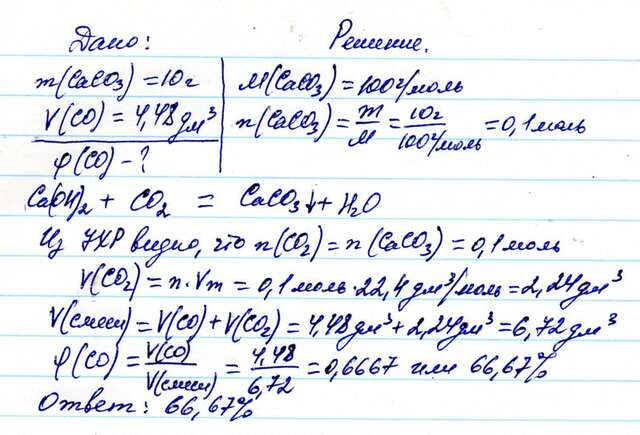 Дано: Решение.
m(CaCO₃) = 10г M(CaCO₃) = 100г/моль
V(CO) = 4,48 дм³ n(CaCO₃) = m/M = 10г/100г/моль = 0,1 моль
φ(CO) - ?
Ca(OH)₂ + CO₂ = CaCO₃↓ + H₂O
Из УХР видно, что n(CO₂) = n(CaCO₃) = 0,1 моль
V(CO₂) = n · Vm = 0,1 моль · 22,4 дм³/моль = 2,24 дм³
V(смеси) = V(CO) + V(CO₂) = 4,48 дм³ + 2,24 дм³ = 6,72 дм³
φ(CO) = V(CO)/V(смеси) = 4,48/6,72 = 0,6667 или 66,67%
Ответ: 66,67%